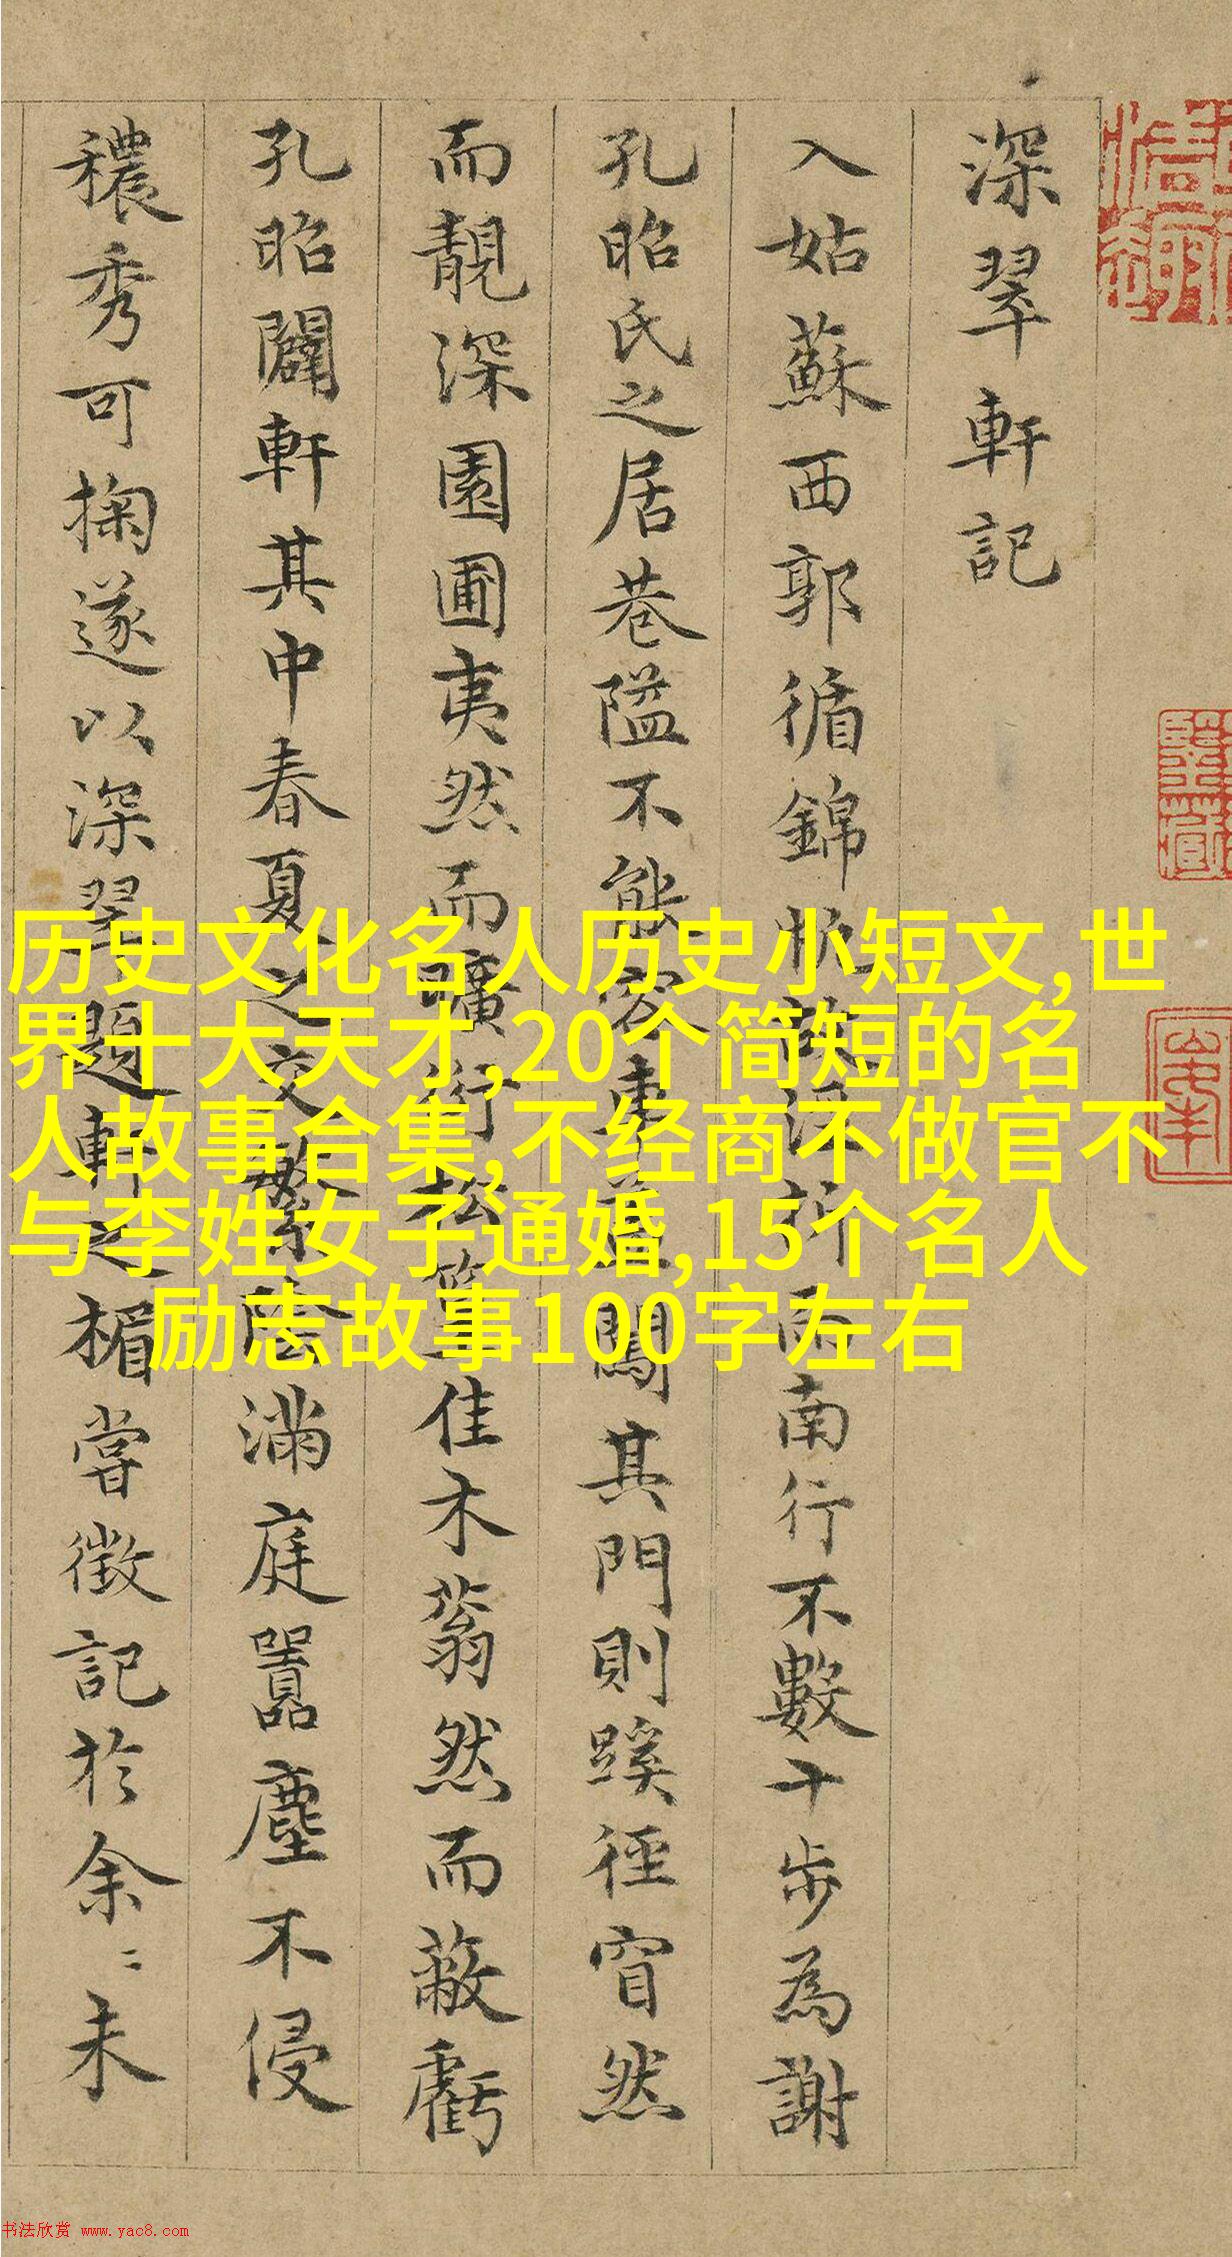 深翠軒記
入姑蘇西郭循錦帆故涇折而南行不數十步為謝
孔昭氏之居巷隘不能容車蓋闖其門則蹊徑窅然
而靚深園圃夷然而曠衍松篁佳木蓊然而蔽虧
孔昭闢軒其中春夏之交繁陰滿庭囂塵不侵
穠秀可掬遂以深翠題軒之楣嘗徵記於余〻未
历史文化名人历史小短文,世
界十大天才,20个简短的名
人故事合集,不经商不做官不
与李姓女子通婚,15个名人
励志故事100字左右
书法欣赏 www.yac8.com